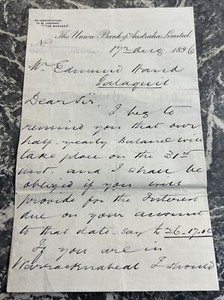 ALL COMMUNICATIONS
TO BE ADDRESSED
"THE MANAGER"
The Union Bank of Australia Limited.
No
17th Aug 1896
Mr Edmund Ward
Lalaquil
Dear Sir
I beg to
remind you that our
half-yearly Balance will
take place on the 31st
inst. and I shall be
obliged if you will
provide for the Interest
due on your account
to that date - say £26.17.
If you are in
Warracknabeal I should